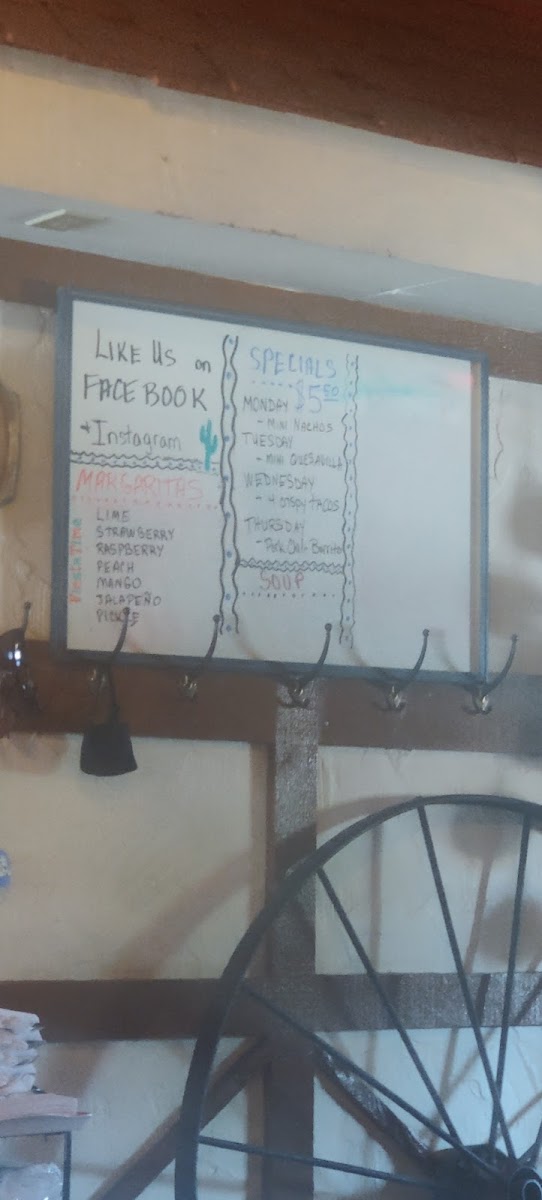 LIKE US on
FACEBOOK
+ Instagram
MARGARITAS
Fiesta Time
LIME
STRAWBERRY
RASPBERRY
PEACH
MANGO
JALAPEÑO
PICKLE
SPECIALS
$5.50
MONDAY
- MINI NACHOS
TUESDAY
- MINI QUESADILLA
WEDNESDAY
- 4 CRISPY TACOS
THURSDAY
- Pork Chili Burrito
SOUP